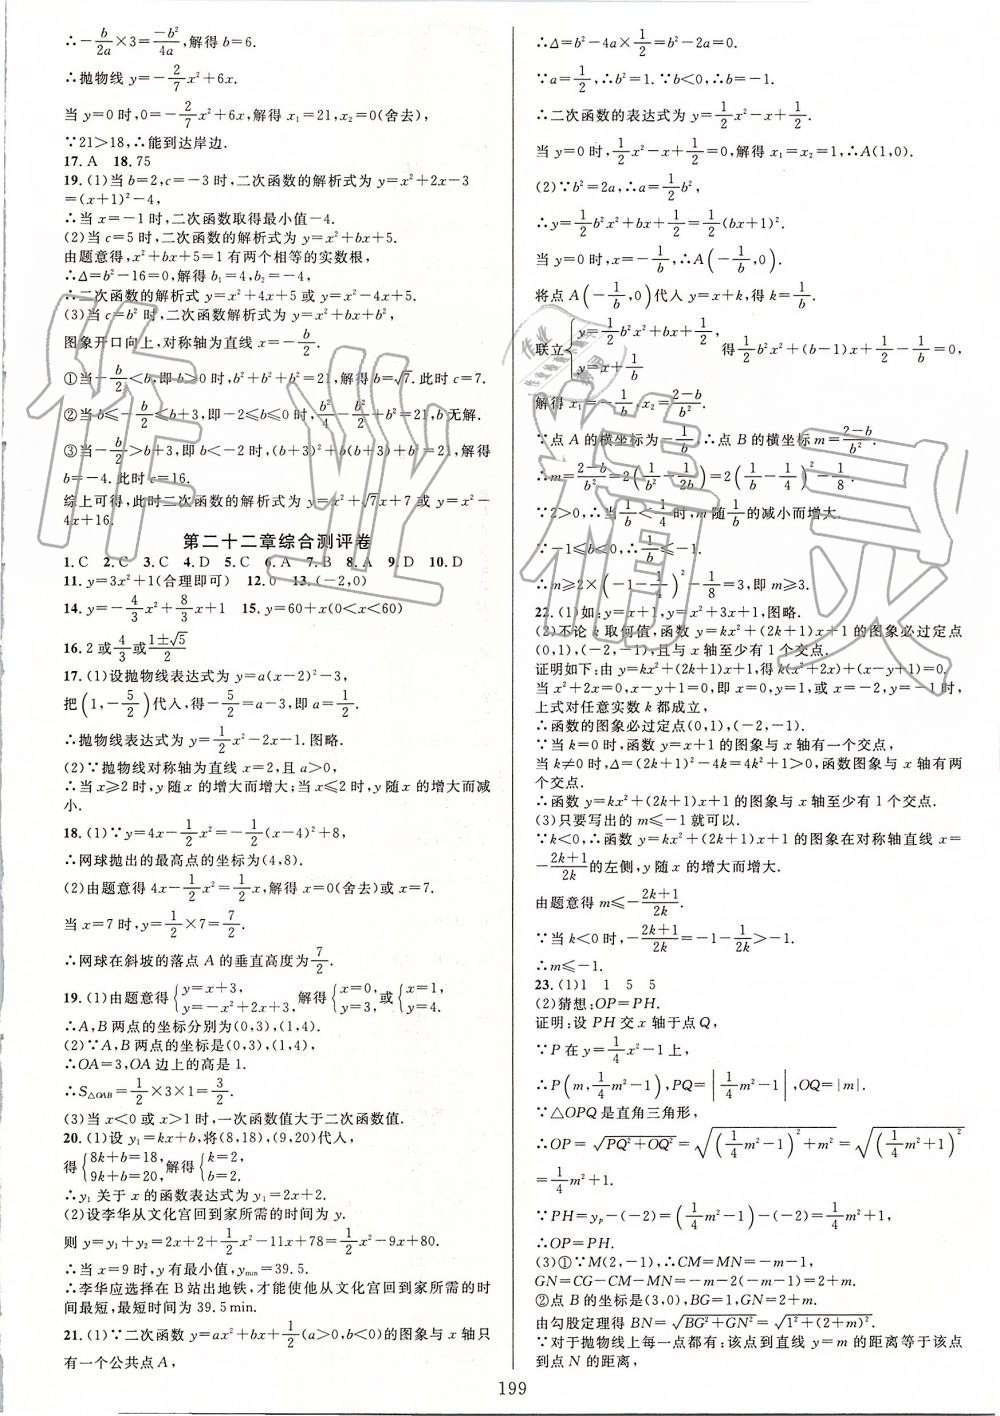 ∴-b/2a×3=-b²/4a,解得b=6.
∴抛物线 y=-2/7x²+6x.
当y=0时,0=-2/7x²+6x,解得 x₁=21,x₂=0(舍去),
∵21>18,∴能到达岸边.
17.A 18.75
19.(1)当b=2,c=-3时,二次函数的解析式为y=x²+2x-3
=(x+1)²-4,
∴当x=-1时,二次函数取得最小值-4.
(2)当c=5时,二次函数的解析式为y=x²+bx+5.
由题意得,x²+bx+5=1有两个相等的实数根,
∴Δ=b²-16=0,解得b₁=4,b₂=-4,
∴二次函数的解析式 y=x²+4x+5或y=x²-4x+5.
(3)当c=b²时,二次函数解析式为y=x²+bx+b²,
图象开口向上,对称轴为直线x=-b/2.
①当-b/2<b,即b>0时,b²+b²+b²=21,解得b=√7.此时c=7.
②当b≤-b/2≤b+3,即-2≤b≤0时,b²/4-b²/2+b²=21,b无解.
③当-b/2>b+3,即b<-2时,(b+3)²+b(b+3)+b²=21,解得
b=-4.此时c=16.
综上可得,此时二次函数的解析式为y=x²+√7x+7或y=x²-
4x+16.
第二十二章综合测评卷
1.C 2.C 3.C 4.D 5.C 6.A 7.B 8.A 9.D 10.D
11.y=3x²+1(合理即可) 12.0 13.(-2,0)
14.y=-4/3x²+8/3x+1 15.y=60+x(0<x<60)
16.2或4/3或(1±√5)/2
17.(1)设抛物线表达式为y=a(x-2)²-3,
把(1,-5/2)代入,得-5/2=a-3,即a=1/2.
∴抛物线表达式为y=1/2x²-2x-1.图略.
(2)∵抛物线对称轴为直线x=2,且a>0,
∴当x≥2时,y随x的增大而增大;当x≤2时,y随x的增大而减
小.
18.(1)∵y=4x-1/2x²=-1/2(x-4)²+8,
∴网球抛出的最高点的坐标为(4,8).
(2)由题意得4x-1/2x²=1/2x,解得x=0(舍去)或x=7.
当x=7时,y=1/2×7=7/2.
∴网球在斜坡的落点A的垂直高度为7/2.
19.(1)由题意得{y=x+3, y=-x²+2x+3,解得{x=0, y=3.或{x=1, y=4.
∴A,B两点的坐标分别为(0,3),(1,4).
(2)∵A,B两点的坐标是(0,3),(1,4),
∴OA=3,OA边上的高是1.
∴S△OAB=1/2×3×1=3/2.
(3)当x<0或x>1时,一次函数值大于二次函数值.
20.(1)设y₁=kx+b,将(8,18),(9,20)代入,
得{8k+b=18, 9k+b=20,解得{k=2, b=2.
∴y₁关于x的函数表达式为y₁=2x+2.
(2)设李华从文化宫回到家所需的时间为y.
则y=y₁+y₂=2x+2+1/2x²-11x+78=1/2x²-9x+80.
∴当x=9时,y有最小值,ymin=39.5.
∴李华应选择在B站出地铁,才能使他从文化宫回到家所需的时
间最短,最短时间为39.5min.
21.(1)∵二次函数y=ax²+bx+1/2(a>0,b<0)的图象与x轴只
有一个公共点A,
∴Δ=b²-4a×1/2=b²-2a=0.
∵a=1/2,∴b²=1.∵b<0,∴b=-1.
∴二次函数的表达式为y=1/2x²-x+1/2.
当y=0时,1/2x²-x+1/2=0,解得x₁=x₂=1,∴A(1,0).
(2)∵b²=2a,∴a=1/2b²,
∴y=1/2b²x²+bx+1/2=1/2(bx+1)².
当y=0时,x=-1/b,∴A(-1/b,0).
将点A(-1/b,0)代入y=x+k,得k=1/b.
联立{y=1/2b²x²+bx+1/2, y=x+1/b 得1/2b²x²+(b-1)x+1/2-1/b=0,
解得x₁=-1/b,x₂=(2-b)/b².
∵点A的横坐标为-1/b,∴点B的横坐标m=(2-b)/b².
∴m=(2-b)/b²=2(1/b²-1/2b)=2(1/b-1/4)²-1/8.
∵2>0,∴当1/b<1/4时,m随1/b的减小而增大.
∵-1≤b<0,∴1/b≤-1.
∴m≥2×(-1-1/4)²-1/8=3,即m≥3.
22.(1)如:y=x+1,y=x²+3x+1,图略.
(2)不论k取何值,函数y=kx²+(2k+1)x+1的图象必过定点
(0,1),(-2,-1),且与x轴至少有1个交点.
证明如下:由y=kx²+(2k+1)x+1,得k(x²+2x)+(x-y+1)=0.
当x²+2x=0,x-y+1=0,即x=0,y=1,或x=-2,y=-1时,
上式对任意实数k都成立,
∴函数的图象必过定点(0,1),(-2,-1).
∵当k=0时,函数y=x+1的图象与x轴有一个交点,
当k≠0时,Δ=(2k+1)²-4k=4k²+1>0,函数图象与x轴有两
个交点.
∴函数y=kx²+(2k+1)x+1的图象与x轴至少有1个交点.
(3)只要写出的m≤-1就可以.
∵k<0,∴函数y=kx²+(2k+1)x+1的图象在对称轴直线x=
-(2k+1)/2k的左侧,y随x的增大而增大.
由题意得m≤-(2k+1)/2k.
∵当k<0时,-(2k+1)/2k=-1-1/2k>-1.
∴m≤-1.
23.(1)1 1 5 5
(2)猜想:OP=PH.
证明:设PH交x轴于点Q,
∵P在y=1/4x²-1上,
∴P(m,1/4m²-1),PQ=|1/4m²-1|,OQ=|m|.
∵△OPQ是直角三角形,
∴OP=√(PQ²+OQ²)=√((1/4m²-1)²+m²)=√((1/4m²+1)²)
=1/4m²+1.
∵PH=yₚ-(-2)=(1/4m²-1)-(-2)=1/4m²+1,
∴OP=PH.
(3)①∵M(2,-1),∴CM=MN=-m-1,
GN=CG-CM-MN=-m-2(-m-1)=2+m.
②点B的坐标是(3,0),BG=1,GN=2+m.
由勾股定理得BN=√(BG²+GN²)=√(1²+(2+m)²).
∵对于抛物线上每一点都有:该点到直线y=m的距离等于该点
到点N的距离,
199
作业精灵